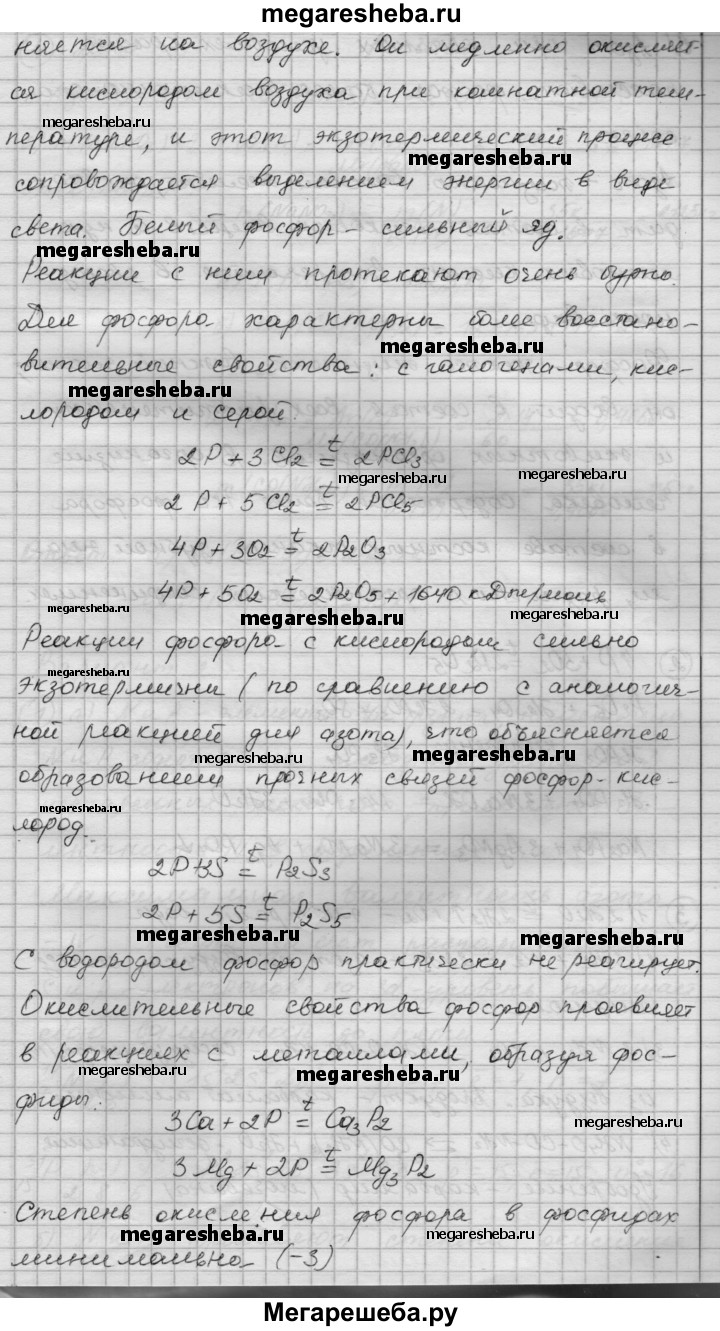 megaresheba.ru
няется на воздухе. Он медленно окисляет-
ся кислородом воздуха при комнатной тем-
megaresheba.ru
пературе, и этот экзотермический процесс
megaresheba.ru
сопровождается выделением энергии в виде
света. Белый фосфор - сильный яд.
megaresheba.ru
Реакции с ним протекают очень бурно.
Для фосфора характерны более восстано-
megaresheba.ru
вительные свойства: с галогенами, кис-
megaresheba.ru
лородом и серой.
2P + 3Cl2 t= 2PCl3
megaresheba.ru megaresheba.ru
2P + 5Cl2 t= 2PCl5
4P + 3O2 t= 2P2O3
4P + 5O2 t= 2P2O5 + 1640 кДж/моль
megaresheba.ru megaresheba.ru
Реакции фосфора с кислородом сильно
megaresheba.ru
экзотермичны (по сравнению с аналогич-
ной реакцией для азота), что объясняется
megaresheba.ru megaresheba.ru
образованием прочных связей фосфор-кис-
megaresheba.ru
лород.
2P+3S t= P2S3
2P + 5S t= P2S5
megaresheba.ru megaresheba.ru
С водородом фосфор практически не реагирует.
Окислительные свойства фосфор проявляет
в реакциях с металлами, образуя фос-
megaresheba.ru megaresheba.ru
фиды:
3Ca + 2P t= Ca3P2
megaresheba.ru
3Mg + 2P t= Mg3P2
Степень окисления фосфора в фосфидах
megaresheba.ru megaresheba.ru
минимальна (-3)
Мегарешеба.ру